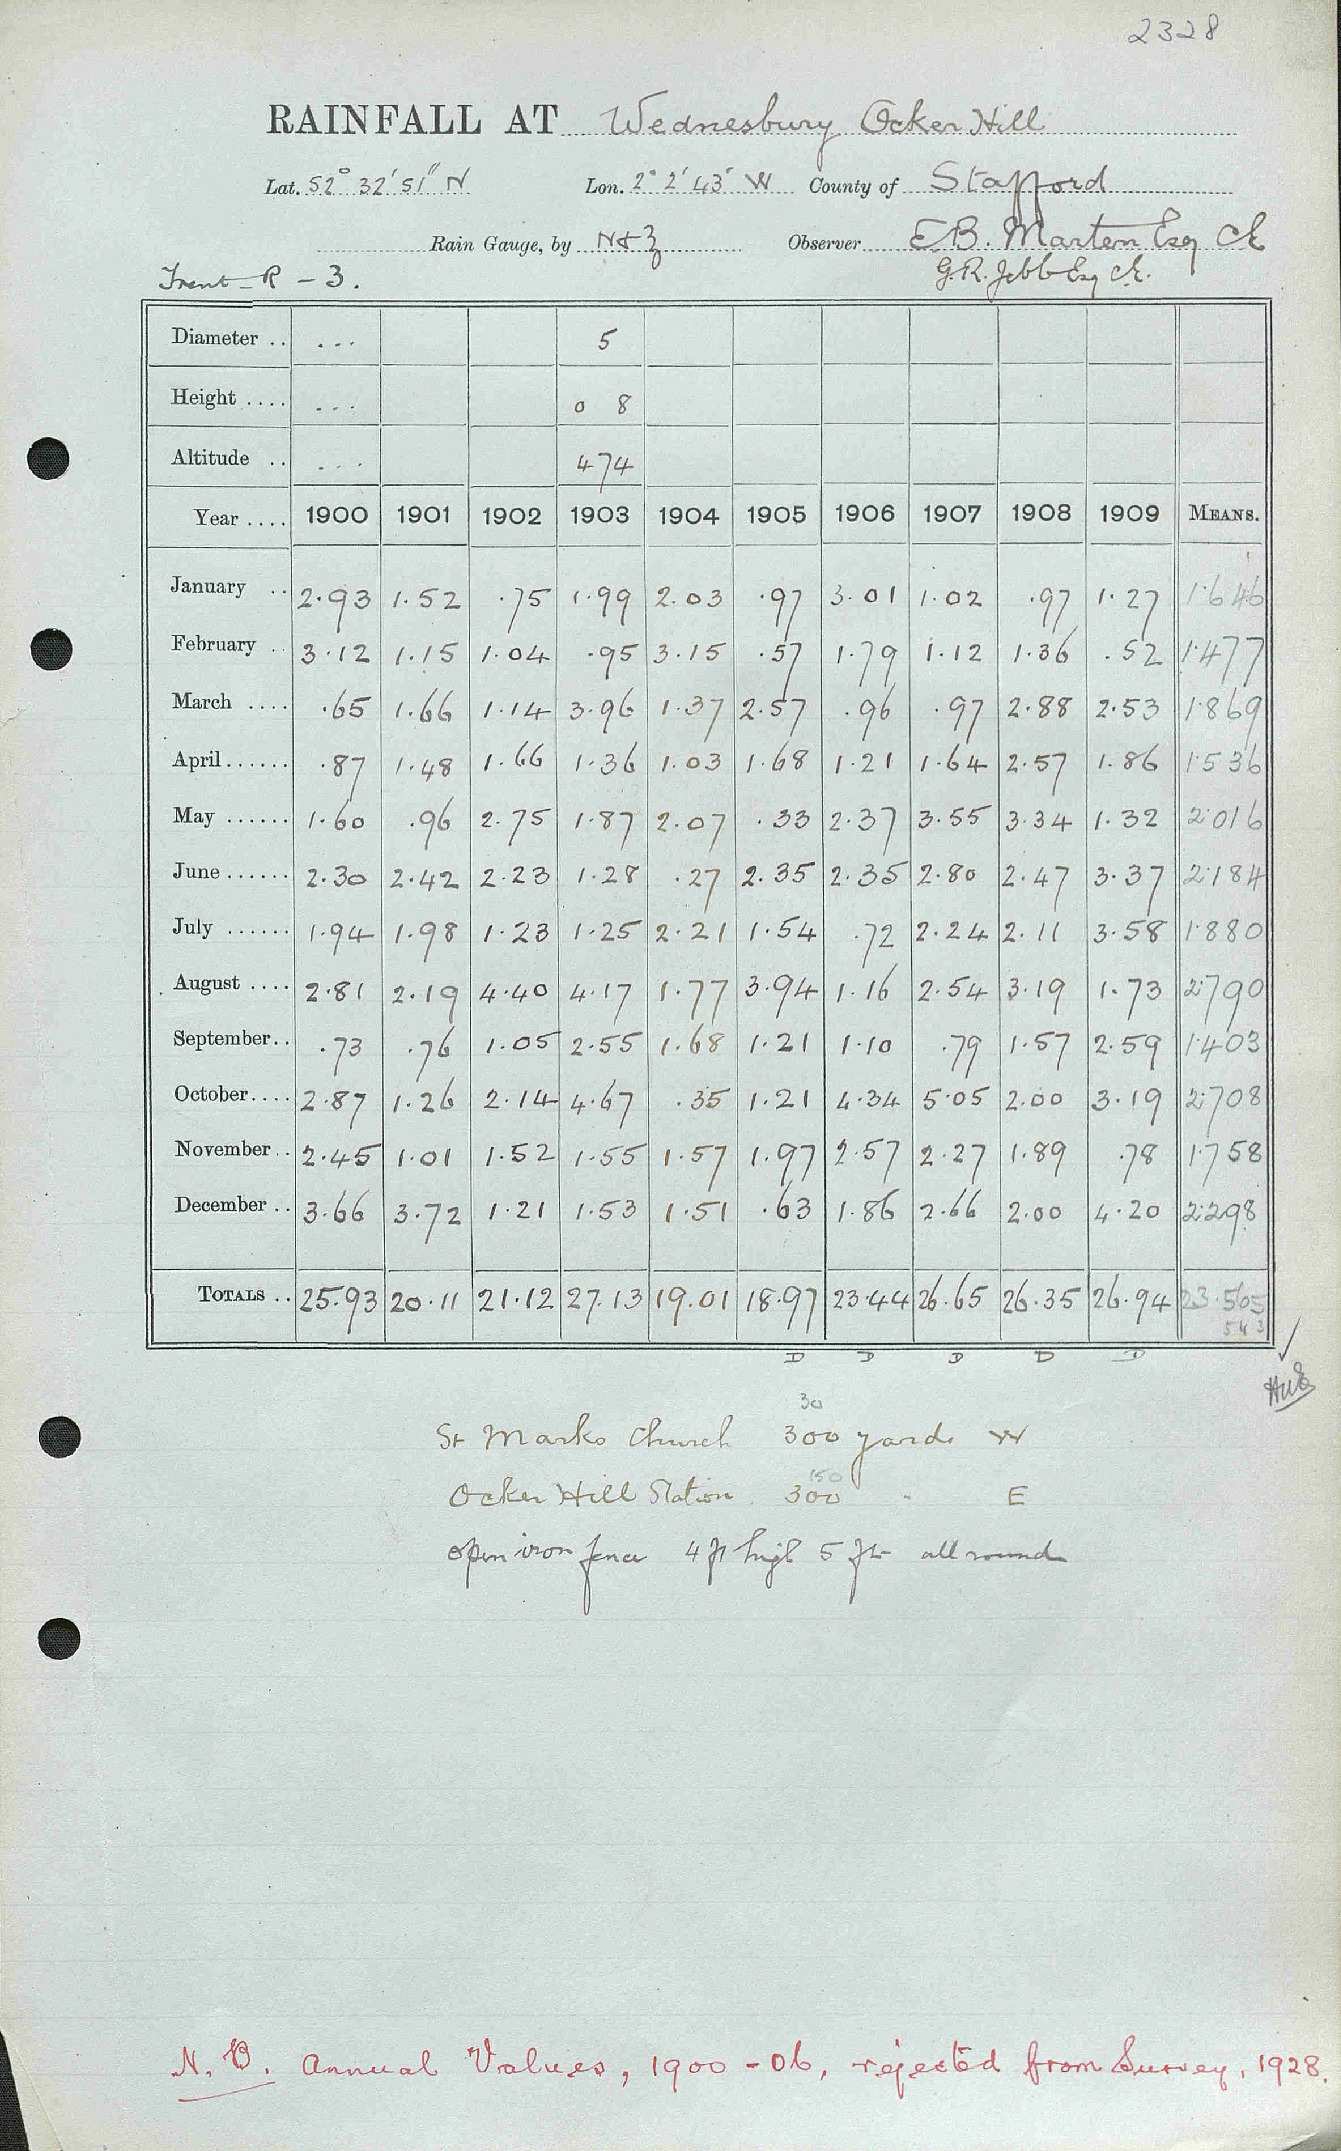 2328
RAINFALL AT Wednesbury Ocker Hill
Lat. 52° 32' 51" N Lon. 2° 2' 43" W County of Stafford
Rain Gauge, by N&Z Observer E.B. Marten Esq CE
Trent R - 3. G.R. Jebb Esq CE.
Diameter .. ... 5
Height .... ... 0 8
Altitude .. ... 474
Year .... 1900 1901 1902 1903 1904 1905 1906 1907 1908 1909 MEANS.
January .. 2.93 1.52 .75 1.99 2.03 .97 3.01 1.02 .97 1.27 1.646
February .. 3.12 1.15 1.04 .95 3.15 .57 1.79 1.12 1.36 .52 1.477
March .... .65 1.66 1.14 3.96 1.37 2.57 .96 .97 2.88 2.53 1.869
April...... .87 1.48 1.66 1.36 1.03 1.68 1.21 1.64 2.57 1.86 1.536
May ...... 1.60 .96 2.75 1.87 2.07 .33 2.37 3.55 3.34 1.32 2.016
June...... 2.30 2.42 2.23 1.28 .27 2.35 2.35 2.80 2.47 3.37 2.184
July ...... 1.94 1.98 1.23 1.25 2.21 1.54 .72 2.24 2.11 3.58 1.880
August .... 2.81 2.19 4.40 4.17 1.77 3.94 1.16 2.54 3.19 1.73 2.790
September.. .73 .76 1.05 2.55 1.68 1.21 1.10 .79 1.57 2.59 1.403
October.... 2.87 1.26 2.14 4.67 .35 1.21 4.34 5.05 2.00 3.19 2.708
November.. 2.45 1.01 1.52 1.55 1.57 1.97 2.57 2.27 1.89 .78 1.758
December .. 3.66 3.72 1.21 1.53 1.51 .63 1.86 2.66 2.00 4.20 2.298
TOTALS .. 25.93 20.11 21.12 27.13 19.01 18.97 23.44 26.65 26.35 26.94 23.565
543
D D D D D
30
St Marks Church 300 yards W
150
Ocker Hill Station 300 " E
open iron fence 4 ft high 5 ft all round
N.B. Annual Values, 1900-06, rejected from Survey, 1928.